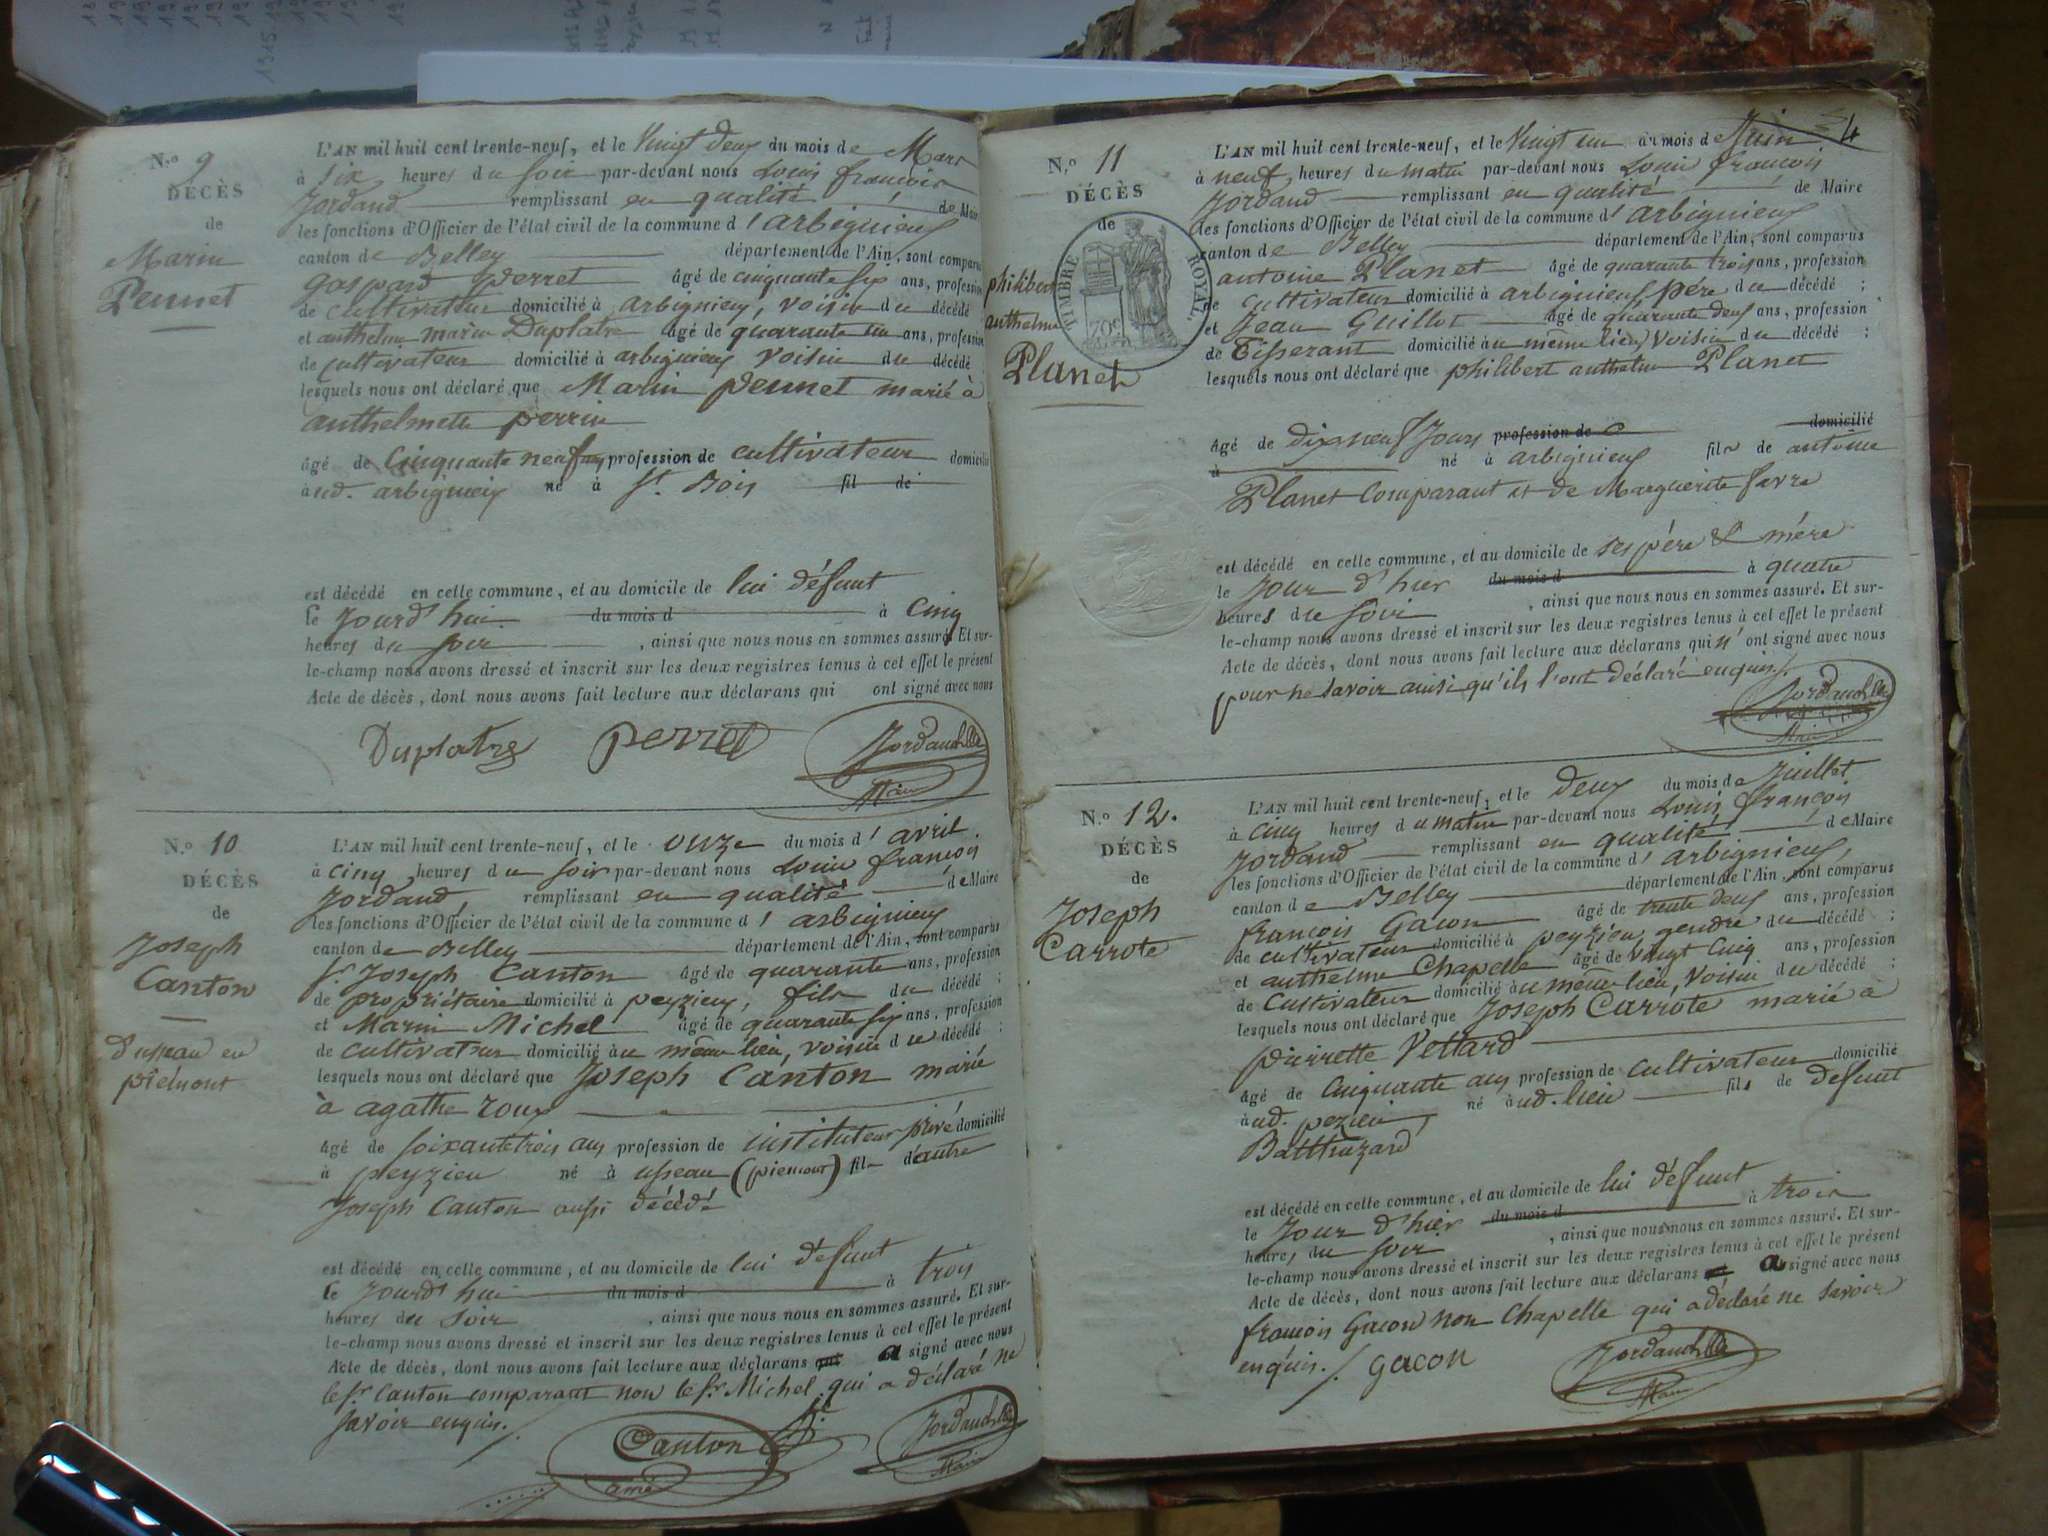 N.o 9
DÉCÈS
de
Marin
Pennet
L'AN mil huit cent trente-neuf, et le Vingt deux du mois de Mars
à six heures du soir par-devant nous Louis françois
Jordand remplissant en qualité de Maire
les fonctions d'Officier de l'état civil de la commune d'arbignieux
canton de Belley département de l'Ain, sont comparus
gaspard perret âgé de cinquante six ans, profession
de cultivateur domicilié à arbignieux, voisin du décédé
et anthelme marin Duplatre âgé de quarante un ans, profession
de cultivateur domicilié à arbignieux voisin du décédé
lesquels nous ont déclaré que Marin pennet marié à
anthelmette perrin
âgé de Cinquante neuf profession de cultivateur domicilié
à ud. arbignieux né à St. Bois fil de
est décédé en cette commune, et au domicile de lui défunt
le Jourd'hui du mois d à cinq
heures du soir, ainsi que nous nous en sommes assuré. Et sur-
le-champ nous avons dressé et inscrit sur les deux registres tenus à cet effet le présent
Acte de décès, dont nous avons fait lecture aux déclarans qui ont signé avec nous
Duplatre perret Jordand
Maire
N.o 10
DÉCÈS
de
Joseph
Canton
d'usseau en
piémont
L'AN mil huit cent trente-neuf, et le onze du mois d'avril.
à cinq heures du soir par-devant nous Louis françois
Jordand, remplissant en qualité de Maire
les fonctions d'Officier de l'état civil de la commune d'arbignieux
canton de Belley département de l'Ain, sont comparus
Sr. Joseph Canton âgé de quarante ans, profession
de propriétaire domicilié à peyzieu, fils du décédé ;
et Marin Michel âgé de quarante six ans, profession
de cultivateur domicilié au même lieu, voisin du décédé :
lesquels nous ont déclaré que Joseph Canton marié
à agathe roux
âgé de soixante trois ans profession de instituteur privé domicilié
à peyzieu né à usseau (piemont) fils d'autre
Joseph Canton aussi décédé
est décédé en cette commune, et au domicile de lui défunt
le Jourd'hui du mois d à trois
heures du soir, ainsi que nous nous en sommes assuré. Et sur-
le-champ nous avons dressé et inscrit sur les deux registres tenus à cet effet le présent
Acte de décès, dont nous avons fait lecture aux déclarans qui a signé avec nous
le Sr. Canton comparant non le Sr. Michel qui a déclaré ne
savoir enquis./
Canton Jordand
ainé Maire
4
N.o 11
DÉCÈS
de
philibert
anthelme
Planet
TIMBRE ROYAL
70c
L'AN mil huit cent trente-neuf, et le Vingt un du mois de Juin
à neuf heures du matin par-devant nous Louis françois
Jordand remplissant en qualité de Maire
les fonctions d'Officier de l'état civil de la commune d'arbignieux
canton de Belley département de l'Ain, sont comparus
antoine Planet âgé de quarante trois ans, profession
de cultivateur domicilié à arbignieux, père du décédé ;
et Jean Guillot âgé de quarante deux ans, profession
de Tisserant domicilié au même lieu, voisin du décédé :
lesquels nous ont déclaré que philibert anthelme Planet
âgé de dix neuf Jours profession de domicilié
à né à arbignieux fils de antoine
Planet Comparant et de Marguerite favre
est décédé en cette commune, et au domicile de ses père & mère
le Jour d'hier du mois d à quatre
heures du soir, ainsi que nous nous en sommes assuré. Et sur-
le-champ nous avons dressé et inscrit sur les deux registres tenus à cet effet le présent
Acte de décès, dont nous avons fait lecture aux déclarans qui n'ont signé avec nous
pour ne savoir ainsi qu'ils l'ont déclaré enquis./.
Jordand
Maire
N.o 12.
DÉCÈS
de
Joseph
Carrote
L'AN mil huit cent trente-neuf, et le deux du mois de Juillet
à cinq heures du matin par-devant nous Louis françois
Jordand remplissant en qualité de Maire
les fonctions d'Officier de l'état civil de la commune d'arbignieux,
canton de Belley département de l'Ain, sont comparus
françois Gacon âgé de trente deux ans, profession
de cultivateur domicilié à peyzieu, gendre du décédé ;
et anthelme Chapelle âgé de vingt cinq ans, profession
de Cultivateur domicilié au même lieu, voisin du décédé :
lesquels nous ont déclaré que Joseph Carrote marié à
pierrette Vettard
âgé de Cinquante ans profession de cultivateur domicilié
à ud. pezieu, né à ud. lieu fils de defunt
Batthazard
est décédé en cette commune, et au domicile de lui défunt
le Jour d'hier du mois d à trois
heures du soir, ainsi que nous nous en sommes assuré. Et sur-
le-champ nous avons dressé et inscrit sur les deux registres tenus à cet effet le présent
Acte de décès, dont nous avons fait lecture aux déclarans a signé avec nous
françois Gacon non Chapelle qui a déclaré ne savoir
enquis./. gacon Jordand
Maire